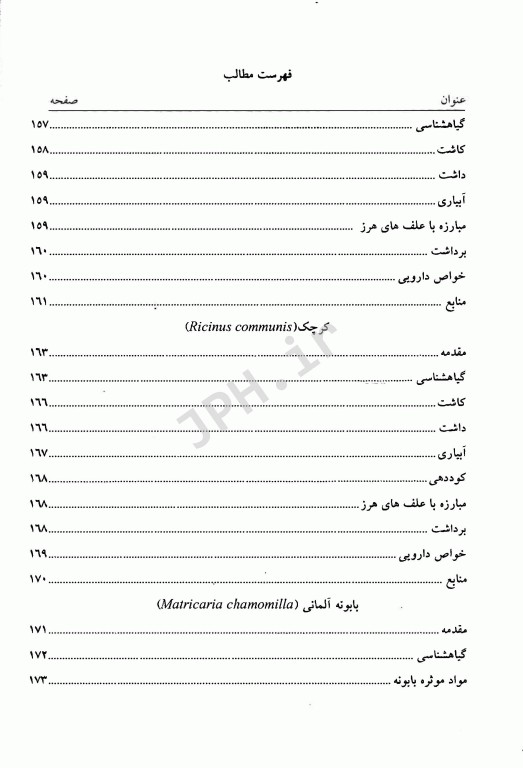 فهرست مطالب
عنوان صفحه
گیاهشناسی ........ ۱۵۷
کاشت ........ ۱۵۸
داشت ........ ۱۵۹
آبیاری ........ ۱۵۹
مبارزه با علف های هرز ........ ۱۵۹
برداشت ........ ۱۶۰
خواص دارویی ........ ۱۶۰
منابع ........ ۱۶۱
کرچک(Ricinus communis)
مقدمه ........ ۱۶۳
گیاهشناسی ........ ۱۶۳
کاشت ........ ۱۶۶
داشت ........ ۱۶۶
آبیاری ........ ۱۶۷
کوددهی ........ ۱۶۸
مبارزه با علف های هرز ........ ۱۶۸
برداشت ........ ۱۶۸
خواص دارویی ........ ۱۶۹
منابع ........ ۱۷۰
بابونه آلمانی (Matricaria chamomilla)
مقدمه ........ ۱۷۱
گیاهشناسی ........ ۱۷۲
مواد موثره بابونه ........ ۱۷۳
JPH.ir